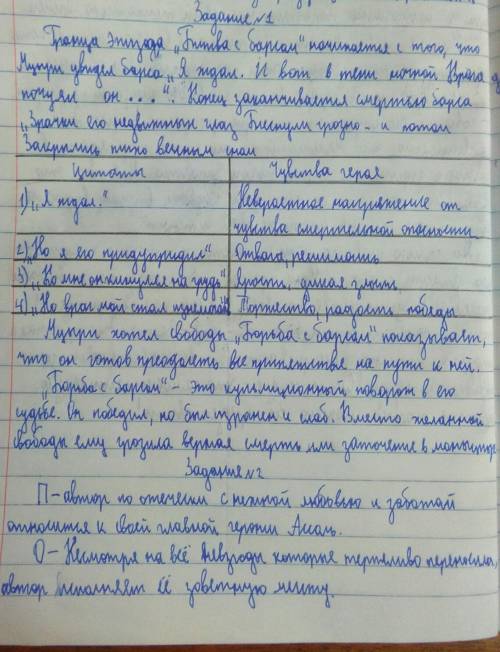 Задание №1
Граница эпизода „Битва с барсом" начинается с того, что
Мцыри увидел барса „Я ждал. И вот в тени ночной Врага
почуял он ...". Конец заканчивается смертью барса
„Зрачки его недвижных глаз Блеснули грозно - и потом
Закрылись тихо вечным сном
Цитаты Чувства героя
1) „Я ждал." Невероятное напряжение от
чувства смертельной опасности
2) „Но я его предупредил" Отвага, решимость
3) „Ко мне он кинулся на грудь" Ярость, дикая злость
4) „Но враг мой стал изнемогать" Торжество, радость победы
Мцыри хотел свободы „Борьба с барсом" показывает,
что он готов преодолеть все припятствие на пути к ней.
„Борьба с барсом" - это кульмиционный поворот в его
судьбе. Он победил, но был изранен и слаб. Вместо желанной
свободы ему грозила верная смерть или заточение в монастыр
Задание №2
П - автор по отечески с нежной любовью и заботай
относится к своей главной героини Ассоль.
О - Несмотря на всё невзгоды которые терпеливо переносила,
автор исполняет её заветную мечту.